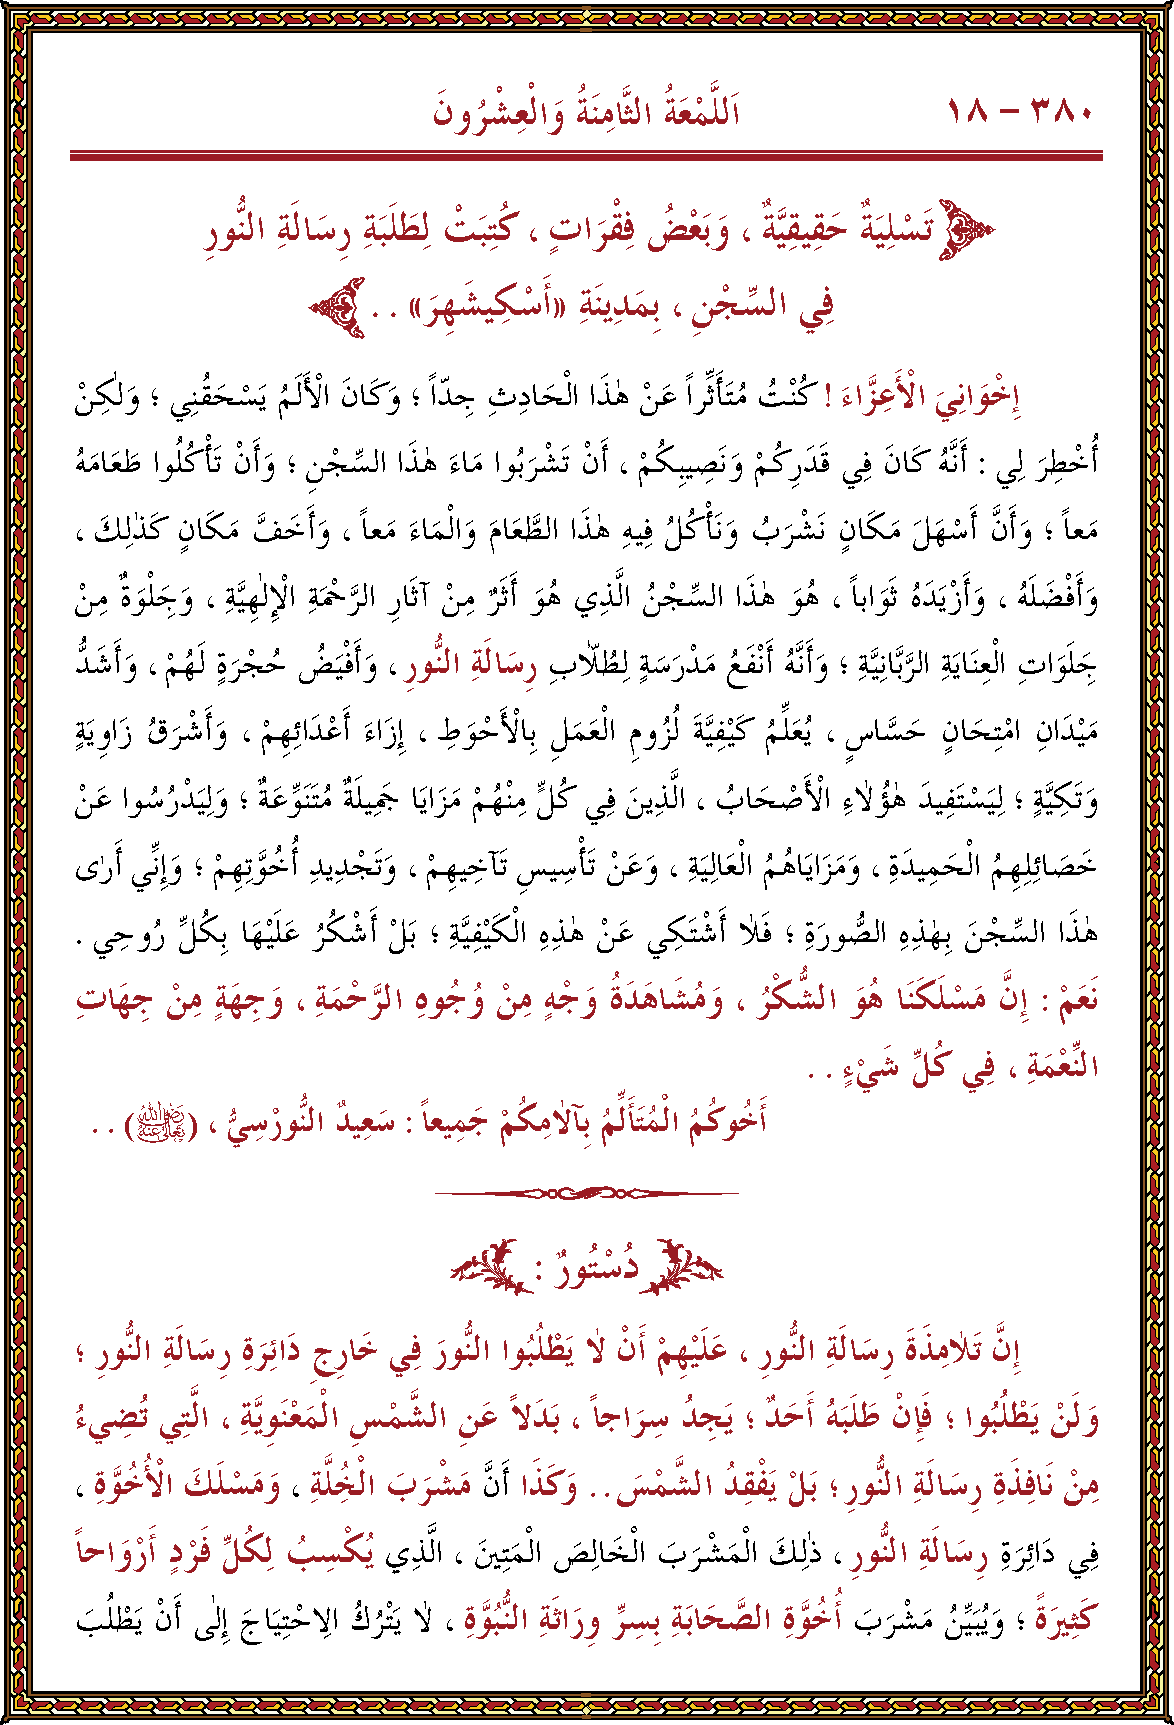 ٣٨٠ – ١٨ اَللَّمْعَةُ الثَّامِنَةُ وَالْعِشْرُونَ
تَسْلِيَةٌ حَقِيقِيَّةٌ ، وَبَعْضُ فِقْرَاتٍ ، كُتِبَتْ لِطَلَبَةِ رِسَالَةِ النُّورِ
فِي السِّجْنِ ، بِمَدِينَةِ «أَسْكِيشَهِرَ» . .
إِخْوَانِيَ الْأَعِزَّاءَ ! كُنْتُ مُتَأَثِّراً عَنْ هٰذَا الْحَادِثِ جِدّاً ؛ وَكَانَ الْأَلَمُ يَسْحَقُنِي ؛ وَلٰكِنْ
أُخْطِرَ لِي : أَنَّهُ كَانَ فِي قَدَرِكُمْ وَنَصِيبِكُمْ ، أَنْ تَشْرَبُوا مَاءَ هٰذَا السِّجْنِ ؛ وَأَنْ تَأْكُلُوا طَعَامَهُ
مَعاً ؛ وَأَنَّ أَسْهَلَ مَكَانٍ نَشْرَبُ وَنَأْكُلُ فِيهِ هٰذَا الطَّعَامَ وَالْمَاءَ مَعاً ، وَأَخَفَّ مَكَانٍ كَذٰلِكَ ،
وَأَفْضَلَهُ ، وَأَزْيَدَهُ ثَوَاباً ، هُوَ هٰذَا السِّجْنُ الَّذِي هُوَ أَثَرٌ مِنْ آثَارِ الرَّحْمَةِ الْإِلٰهِيَّةِ ، وَجِلْوَةٌ مِنْ
جِلَوَاتِ الْعِنَايَةِ الرَّبَّانِيَّةِ ؛ وَأَنَّهُ أَنْفَعُ مَدْرَسَةٍ لِطُلَّابِ رِسَالَةِ النُّورِ ، وَأَفْيَضُ حُجْرَةٍ لَهُمْ ، وَأَشَدُّ
مَيْدَانِ امْتِحَانٍ حَسَّاسٍ ، يُعَلِّمُ كَيْفِيَّةَ لُزُومِ الْعَمَلِ بِالْأَحْوَطِ ، إِزَاءَ أَعْدَائِهِمْ ، وَأَشْرَقُ زَاوِيَةٍ
وَتَكِيَّةٍ ؛ لِيَسْتَفِيدَ هٰؤُلَاءِ الْأَصْحَابُ ، الَّذِينَ فِي كُلٍّ مِنْهُمْ مَزَايَا جَمِيلَةٌ مُتَنَوِّعَةٌ ؛ وَلِيَدْرُسُوا عَنْ
خَصَائِلِهِمُ الْحَمِيدَةِ ، وَمَزَايَاهُمُ الْعَالِيَةِ ، وَعَنْ تَأْسِيسِ تَآخِيهِمْ ، وَتَجْدِيدِ أُخُوَّتِهِمْ ؛ وَإِنِّي أَرٰى
هٰذَا السِّجْنَ بِهٰذِهِ الصُّورَةِ ؛ فَلَا أَشْتَكِي عَنْ هٰذِهِ الْكَيْفِيَّةِ ؛ بَلْ أَشْكُرُ عَلَيْهَا بِكُلِّ رُوحِي .
نَعَمْ : إِنَّ مَسْلَكَنَا هُوَ الشُّكْرُ ، وَمُشَاهَدَةُ وَجْهٍ مِنْ وُجُوهِ الرَّحْمَةِ ، وَجِهَةٍ مِنْ جِهَاتِ
النِّعْمَةِ ، فِي كُلِّ شَيْءٍ . .
أَخُوكُمُ الْمُتَأَلِّمُ بِآلَامِكُمْ جَمِيعاً : سَعِيدٌ النُّورْسِيُّ ، (رضي الله تعالى عنه) . .
دُسْتُورٌ :
إِنَّ تَلَامِذَةَ رِسَالَةِ النُّورِ ، عَلَيْهِمْ أَنْ لَا يَطْلُبُوا النُّورَ فِي خَارِجِ دَائِرَةِ رِسَالَةِ النُّورِ ؛
وَلَنْ يَطْلُبُوا ؛ فَإِنْ طَلَبَهُ أَحَدٌ ؛ يَجِدُ سِرَاجاً ، بَدَلاً عَنِ الشَّمْسِ الْمَعْنَوِيَّةِ ، الَّتِي تُضِيءُ
مِنْ نَافِذَةِ رِسَالَةِ النُّورِ ؛ بَلْ يَفْقِدُ الشَّمْسَ . . وَكَذَا أَنَّ مَشْرَبَ الْخُلَّةِ ، وَمَسْلَكَ الْأُخُوَّةِ ،
فِي دَائِرَةِ رِسَالَةِ النُّورِ ، ذٰلِكَ الْمَشْرَبَ الْخَالِصَ الْمَتِينَ ، الَّذِي يُكْسِبُ لِكُلِّ فَرْدٍ أَرْوَاحاً
كَثِيرَةً ؛ وَيُبَيِّنُ مَشْرَبَ أُخُوَّةِ الصَّحَابَةِ بِسِرِّ وِرَاثَةِ النُّبُوَّةِ ، لَا يَتْرُكُ الِاحْتِيَاجَ إِلٰى أَنْ يَطْلُبَ